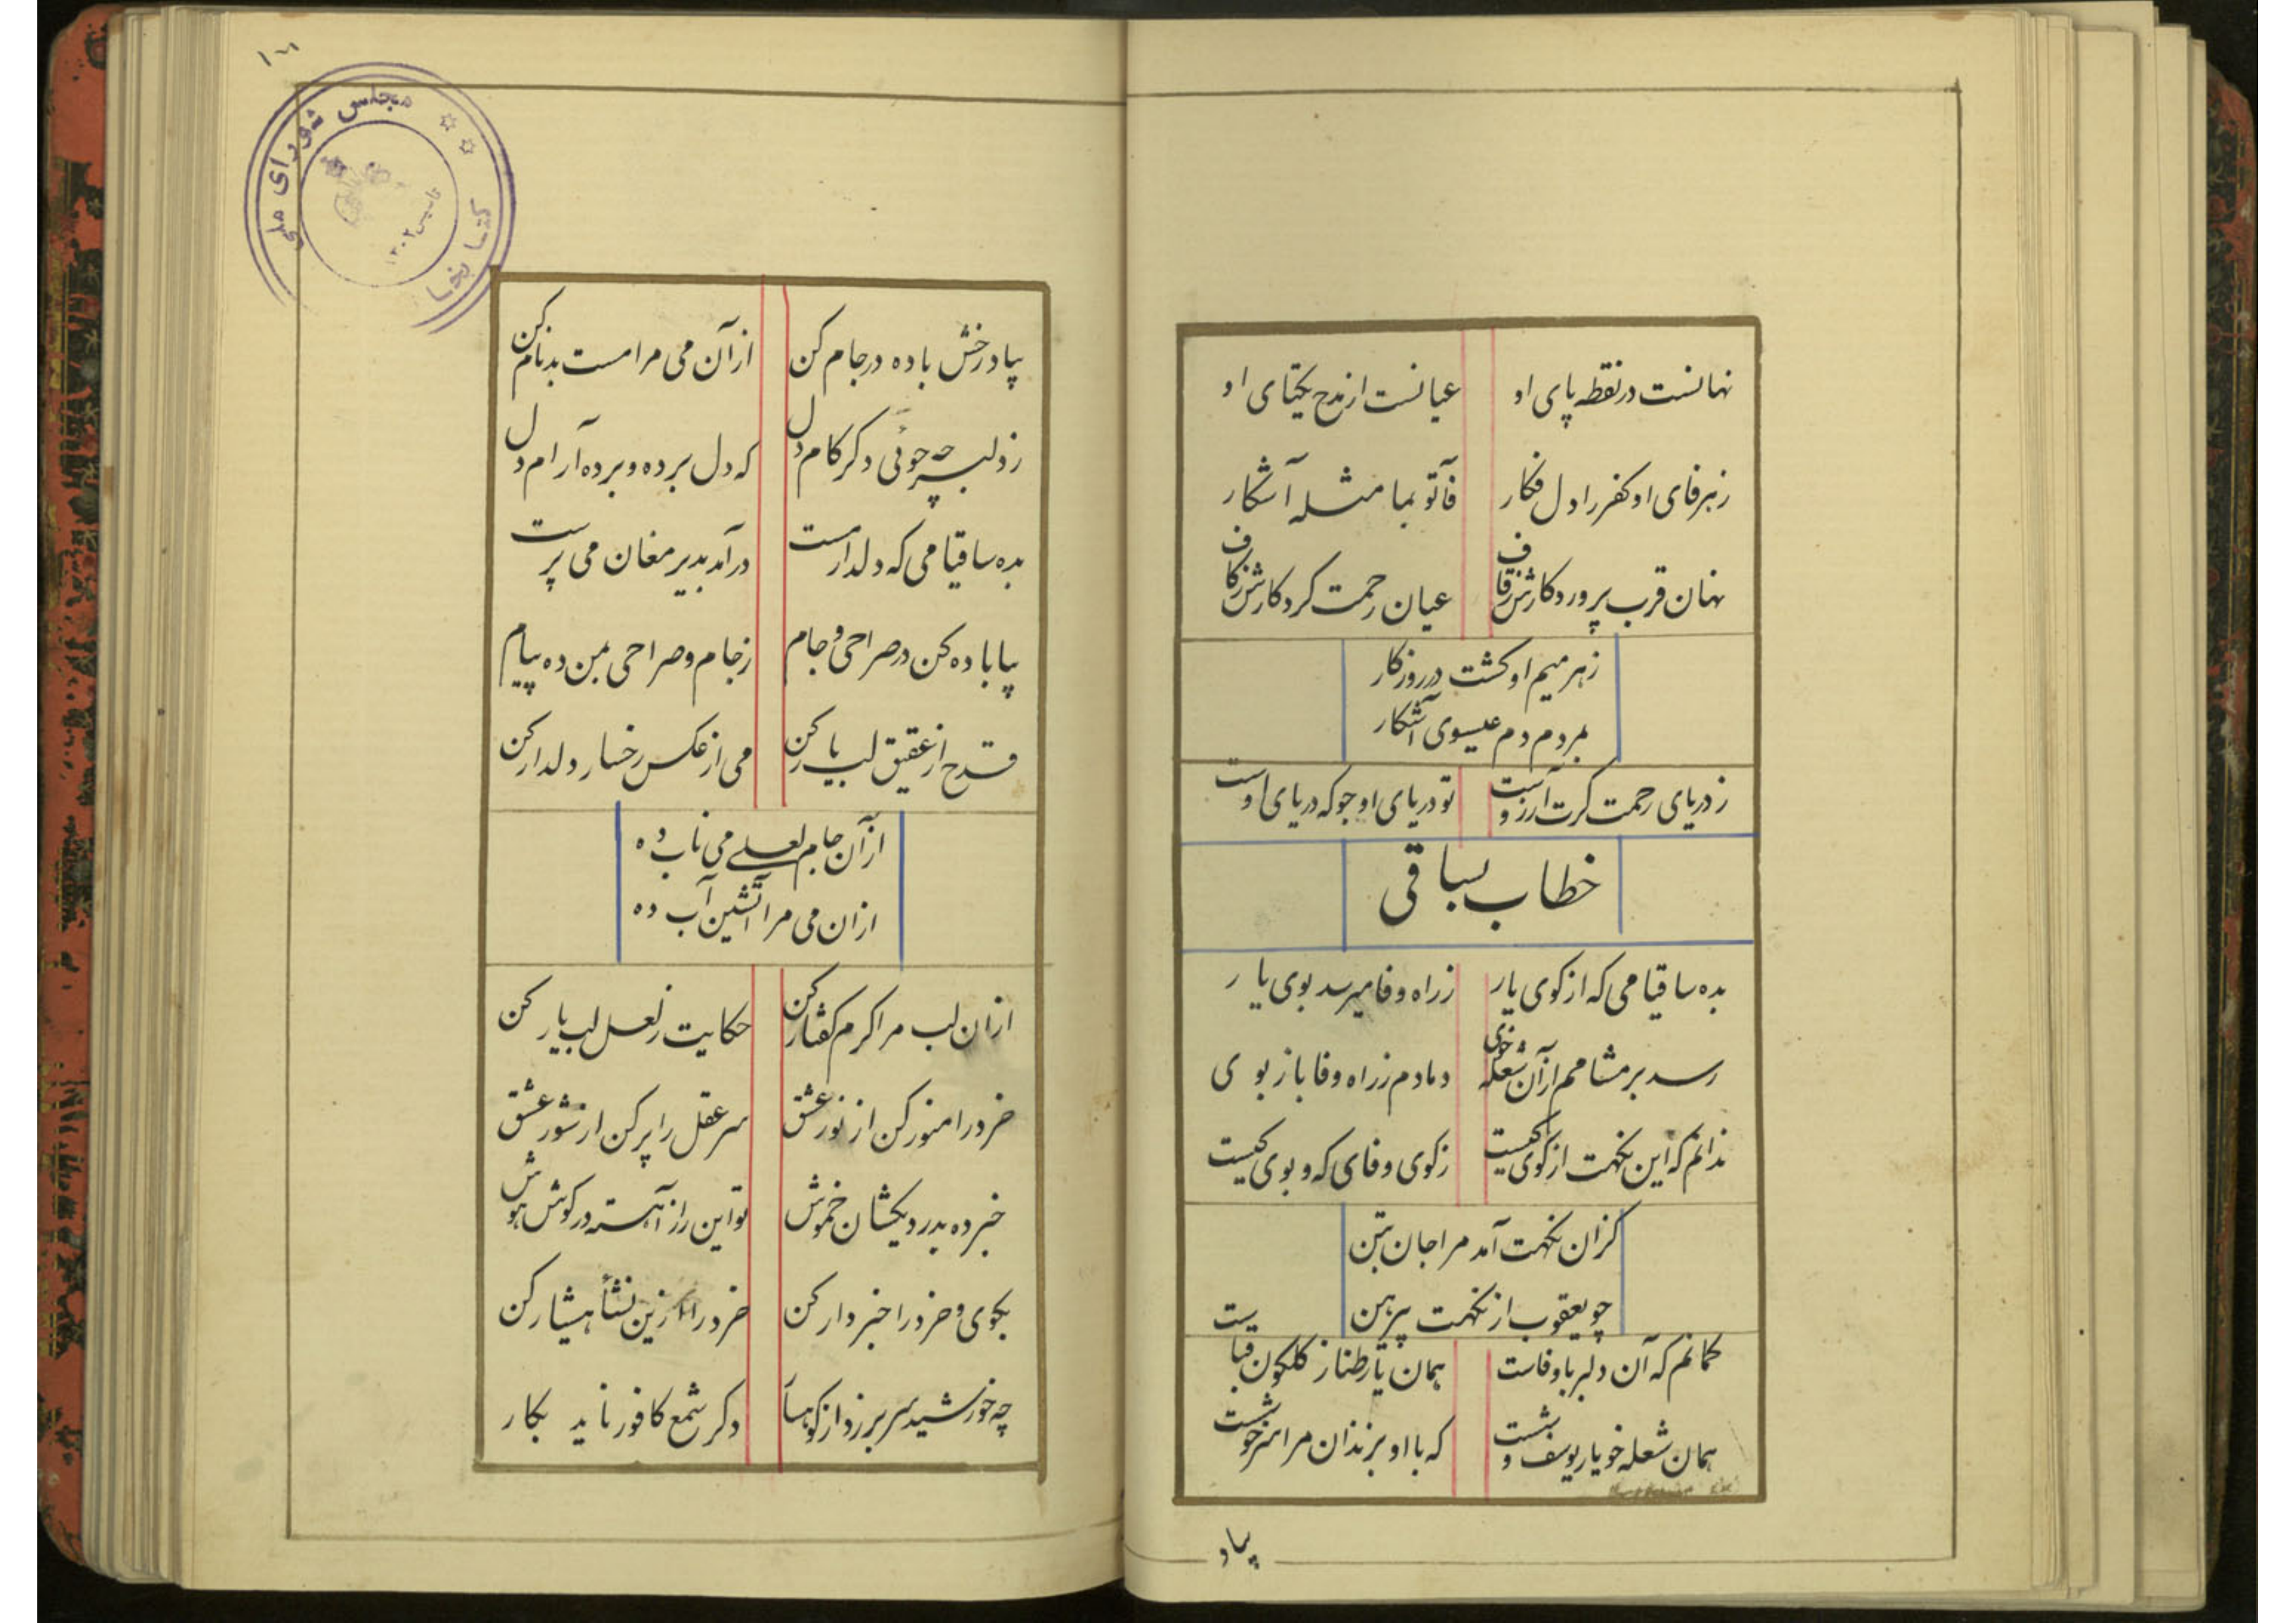 نهانست در نقطه پای او عیانست از مدح یکتای او
ز هر فای او کفر را دل فکار فأتو بما مثله آشکار
نهان قرب پروردکارش ز قاف عیان رحمت کردکارش ز کاف
ز هر میم او کشت در روزکار
بمردم دم عیسوی آشکار
ز دریای رحمت کرت آرزوست تو دریای او جو که دریای اوست
خطاب بساقی
بده ساقیا می که از کوی یار ز راه وفا میرسد بوی یار
رسد بر مشامم از آن شعله خوی دمادم ز راه وفا باز بوی
ندانم که این نکهت از کوی کیست ز کوی وفای که و بوی کیست
کزان نکهت آمد مرا جان بتن
چو یعقوب از نکهت پیرهن
کمانم که آن دلبر باوفاست همان یار طناز کلکون قباست
همان شعله خو یار یوسف وشست که با او بزندان مرا سر خوشست
بیاد
بیاد رخش باده در جام کن از آن می مرا مست بدنام کن
ز دلبر چه جوئی دکر کام دل که دل برده و برده آرام دل
بده ساقیا می که دلدار مست درآمد بدیر مغان می پرست
بیا باده کن در صراحی و جام ز جام و صراحی بمن ده پیام
قدح از عقیق لب یار کن می از عکس رخسار دلدار کن
از آن جام لعلی می ناب ده
ازان می مرا آتشین آب ده
ازان لب مرا کرم کفتار کن حکایت ز لعل لب یار کن
خرد را منور کن از نور عشق سر عقل را پر کن از شور عشق
خبر ده بدردیکشان خموش تو این راز آهسته در کوش هوش
بکوی و خرد را خبردار کن خرد را ازین نشأ هشیار کن
چه خورشید سر بر زد از کوهسا دکر شمع کافور ناید بکار
مجلس شورای ملی
کتابخانه
تاسیس ۱۳۰۲